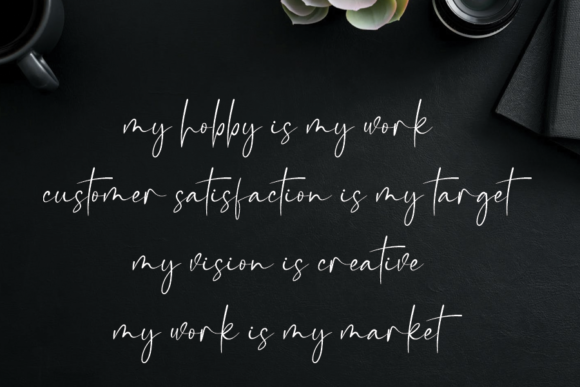 my hobby is my work
customer satisfaction is my target
my vision is creative
my work is my market